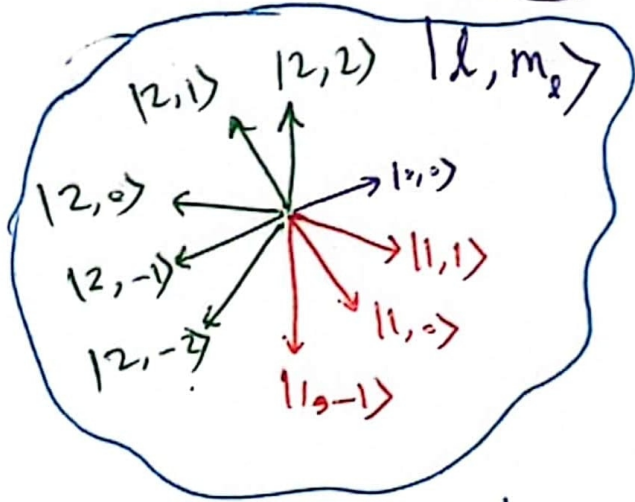 |2,1⟩ |2,2⟩ |l, m_l⟩
|2,0⟩ |0,0⟩
|2,-1⟩ |1,1⟩
|2,-2⟩ |1,0⟩
|1,-1⟩